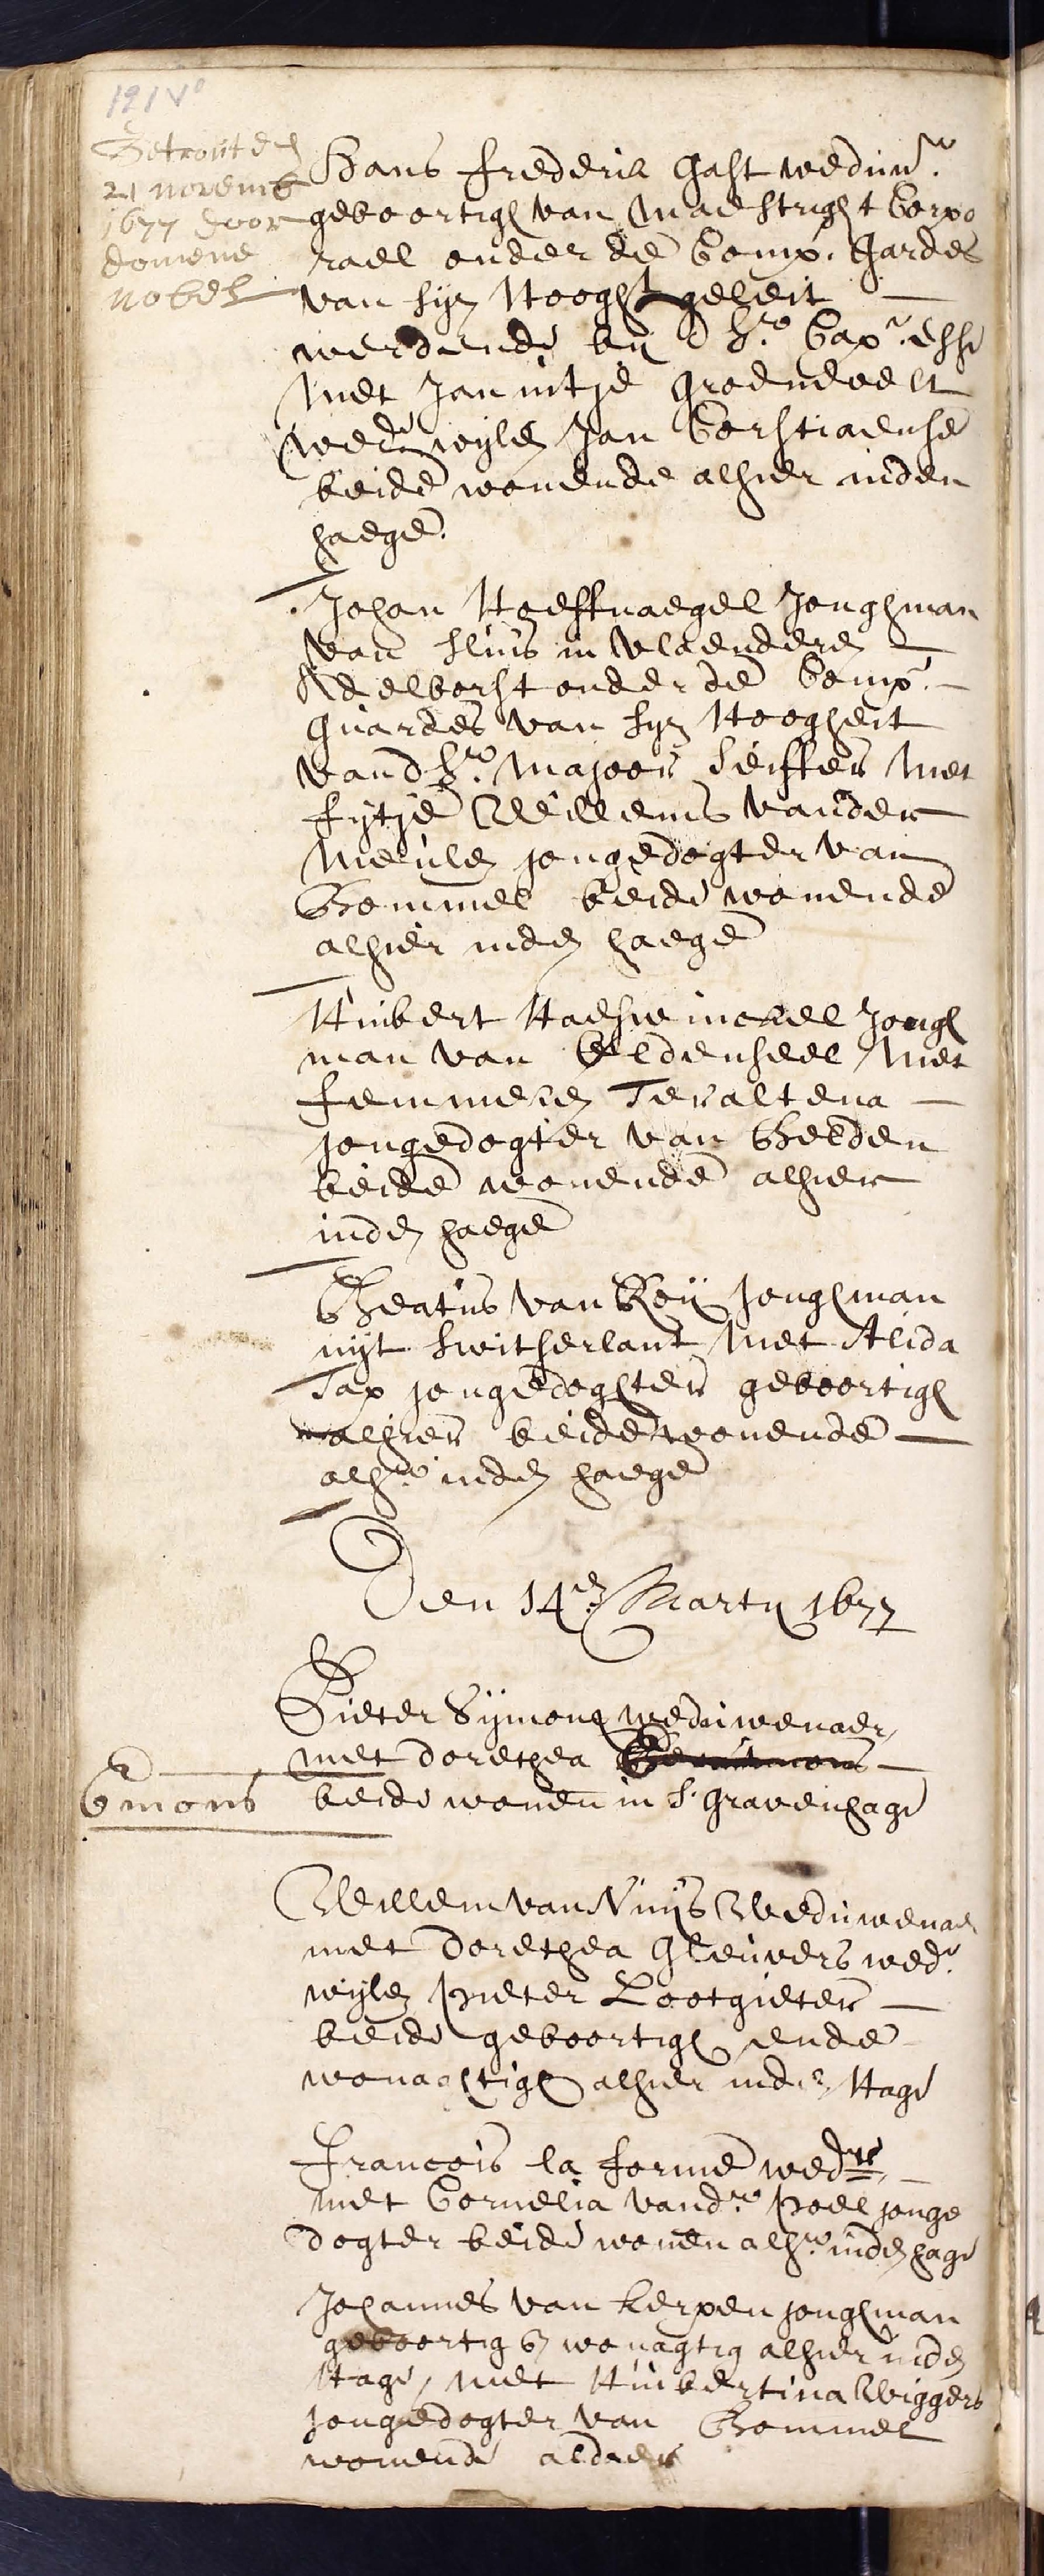 191 vo
Getrout den
21 novemb
1677 door
domene
nobel
Hans frederik Gast weduwr
geboortigh van Maestright Corpo
rael onder de Comp. Gardes
van syn Hooght geleit
werdende bij d hr. Capn. esse
Met Jannitje Groenevelt
wede wylen Jan Corstiaense
beide wonende alhier inden
haege.
Johan Hoeffnaegel Jonghman
van sluis in vlaenderen
Adelborst onder de Comp.
Guardes van syn Hoogheit
vand hr. Majoor seiffer Met
fytje Willems vander
Meulen jongedogter van
Bommel beide wonende
alhier inden haege
Huibert Haeswinckel Jongh
man van Oldenseel Met
femmeken Ter altena
jongedogter van Gelder
beide wonende alhier
inden haege
Beatus van Roy Jonghman
uijt switserlant Met Alida
Tax jongedoghter geboortigh
alhier beide wonende
alhr. inden haege
Den 14en Marty 1677
Pieter Symons weduwenaer,
met dorethea
Emons
beide wonen in s. Gravenhage
Willem van Nuijs Weduwenaer
met Dorethea Gleuvers wede.
wijlen pieter Lootgieter
beide geboortigh ende
wonachtigh alhier inden Hage
francois la forme wedr
met Cornelia vandr. poel jonge
dogter beide wonen alhr. inden hage
Johannes van kerpen jonghman
geboortig en wonagtig alhier inden
Hage, met Huibertina Wiggers
jongedogter van Bommel
wonende aldaer